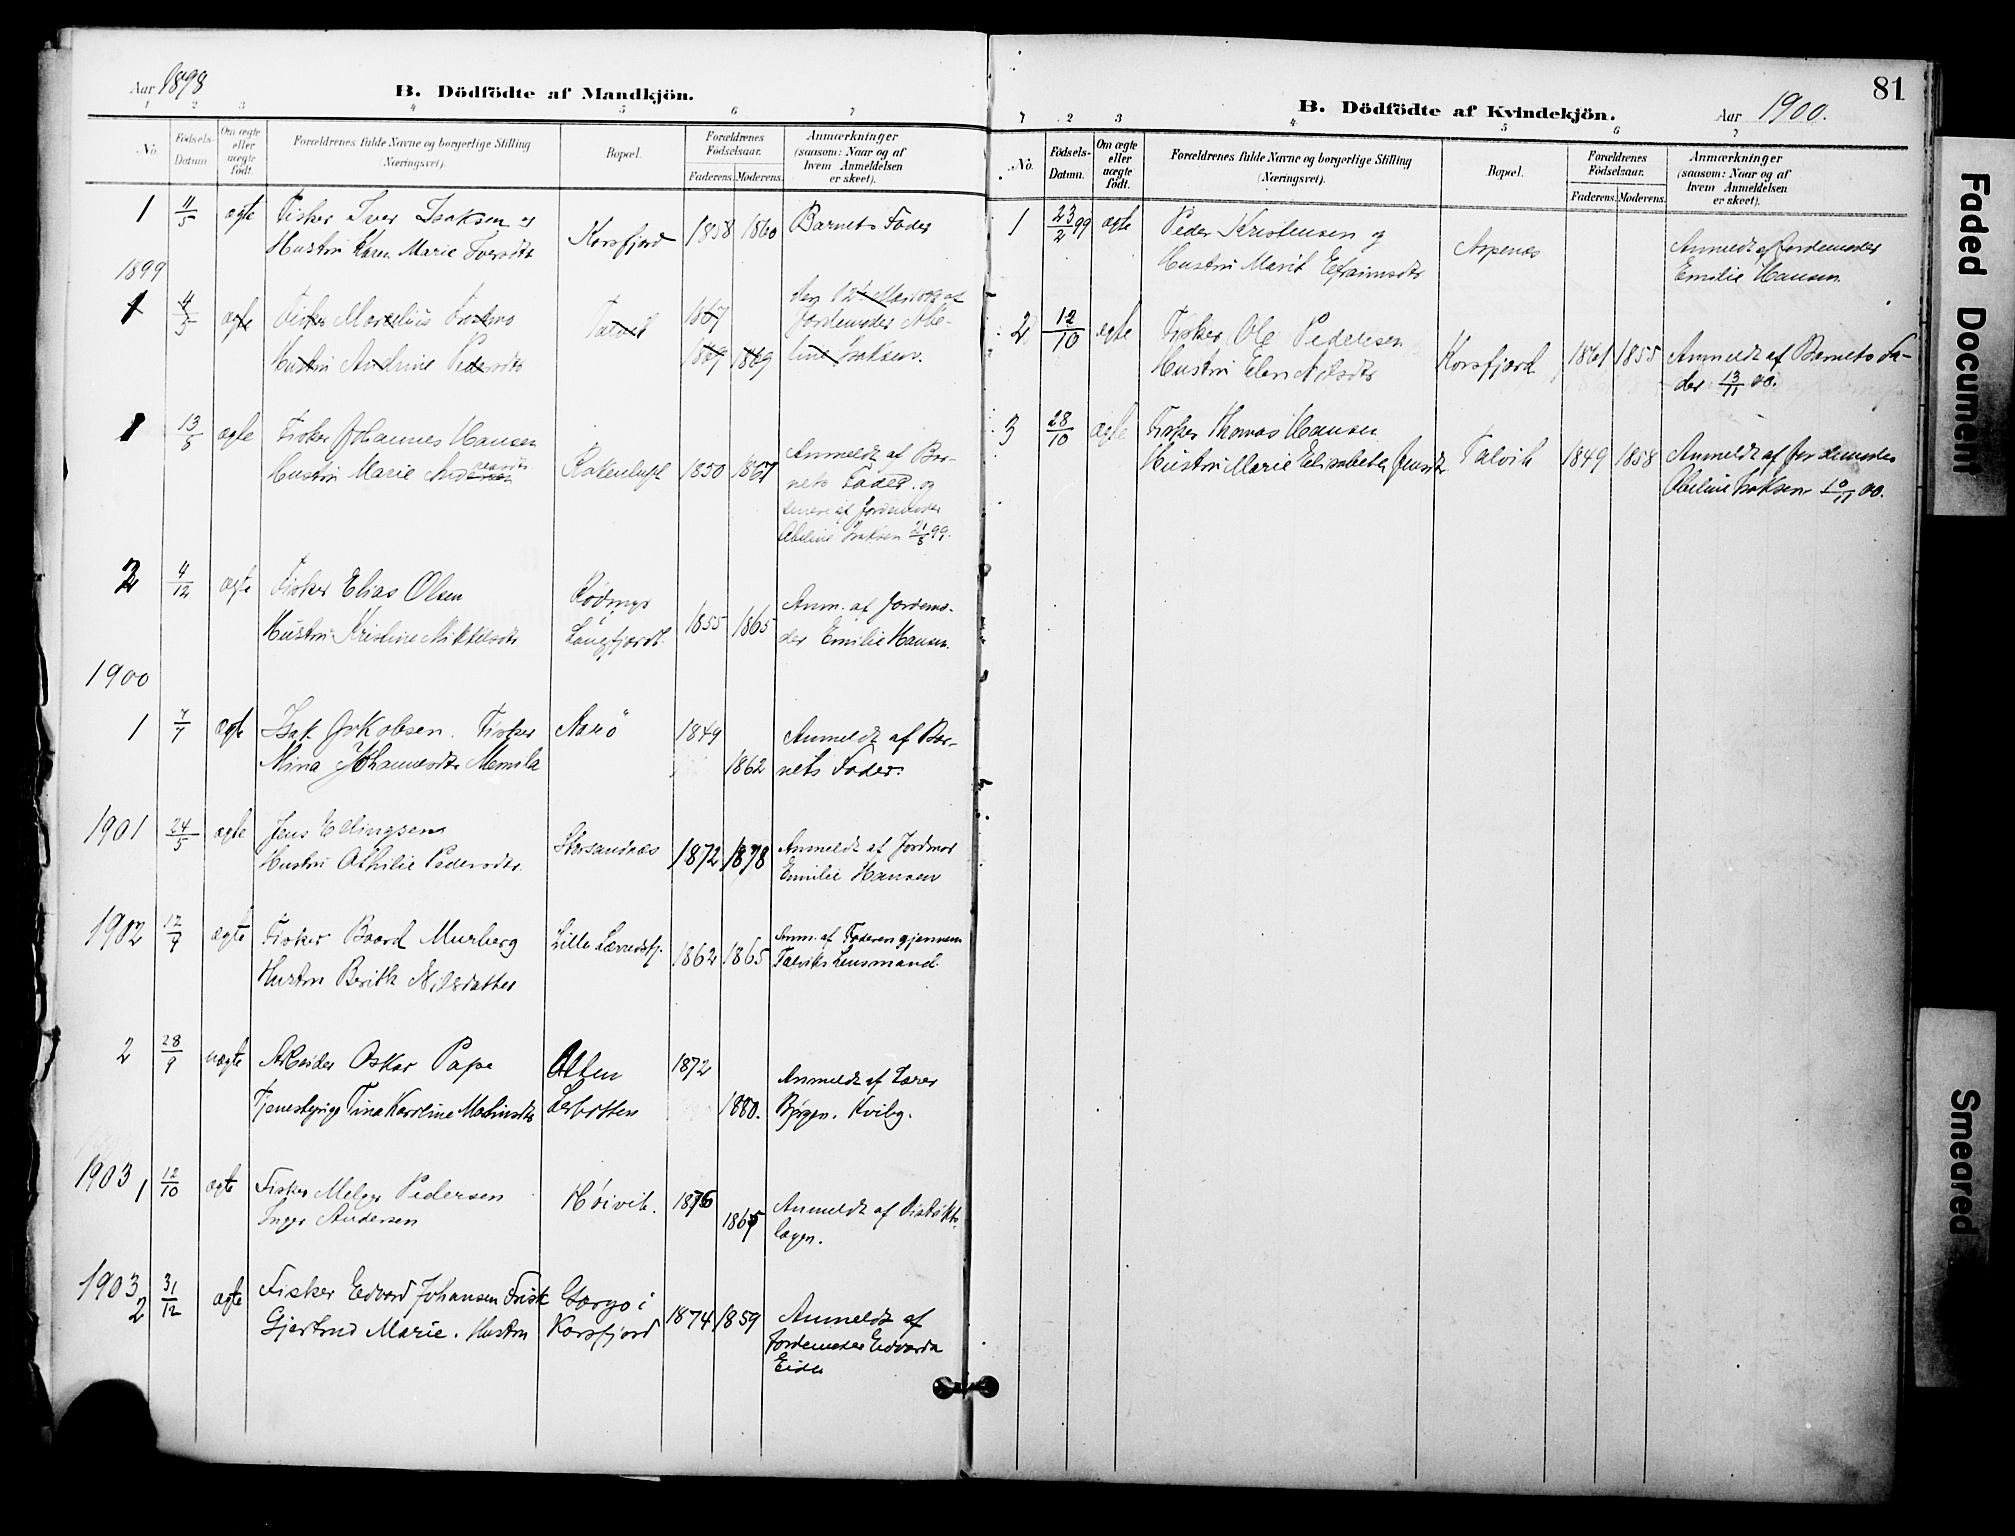 Aar 1898
B. Dödfödte af Mandkjön.
1 2 3 4 5 6 7
No.
Födsels-Datum.
Om ægte eller uægte födt.
Forældrenes fulde Navne og borgerlige Stilling (Næringsvei).
Bopæl.
Forældrenes Födselsaar.
Faderens. Moderens.
Anmærkninger (saasom: Naar og af hvem Anmeldelsen er skeet).
1 11/5 ægte Fisker Iver Isaksen og
Hustru Karen Marie Iversdtr Korsfjord 1858 1860 Barnets Fader
1899
1 4/3 ægte Fisker
Hustru Andrine Pedersdtr Talvik 1867
1869 1869
Jordemoder Abe-
line Isaksen.
1 13/5 ægte Fisker Johannes Hansen
Hustru Marie 1850 1867 Anmeldt af Bar-
nets Fader og
senere af Jordemoder
Abeline Isaksen 21/5 99.
2 4/12 ægte Fisker Elias Olsen
Hustru Kristine Mikkelsdtr Rødmyr
Langfjordb. 1855 1865 Anm. af Jordemo-
der Emilie Hansen.
1900
1 7/7 ægte Isak Jakobsen. Fisker Aarö 1849
Nina Johannesdtr 1862 Anmeldt af Bar-
nets Fader.
1901 24/5 ægte Jens Ellingsen
Hustru Othilie Pedersdtr. Storsandnæs 1872 1878 Anmeldt af Jordmor
Emilie Hansen
1902 ægte Fisker Baard Murberg
Hustru Berith Nilsdatter Lille Lærredsfj. 1862 1865 Anm. af Faderen gjennem
Talviks Lensmand.
2 28/9 uægte Arbeider Oskar Pape
Tjenestepige Tina Karoline Alten 1872
1880. Anmeldt af Lærer
Bjørgen. Kvibg.
1903 1 12/10 ægte Fisker Pedersen
Inger Andersen Høivik. 1876
Anmeldt af Distrikts-
lægen.
1903 2 31/12 ægte Fisker Edvard Johansen Frisk
Gjertrud Marie. Hustru i
Korsfjord 1874 1859 Anmeldt af
Jordemoder Edvarda
Eide
81
B. Dödfödte af Kvindekjön.
Aar 1900.
1 2 3 4 5 6 7
No.
Födsels-Datum.
Om ægte eller uægte födt.
Forældrenes fulde Navne og borgerlige Stilling (Næringsvei).
Bopæl.
Forældrenes Födselsaar.
Faderens. Moderens.
Anmærkninger (saasom: Naar og af hvem Anmeldelsen er skeet).
1 23/2 99 ægte Peder Kristensen og
Hustru Marit Efraimsdtr Aspenes Anmeldt af Jordemoder
Emilie Hansen
2 12/10 ægte Fisker Ole Pedersen
Hustru Elen Nilsdtr Korsfjord 1861 1855 Anmeldt af Barnets Fa-
der 13/11 00.
3 28/10 ægte Fisker Thomas Hansen
Hustru Marie Elisabeth Jensdtr Talvik 1849 1858 Anmeldt af Jordemoder
Abeline Isaksen 10/11 00.
Faded Document
Smeared